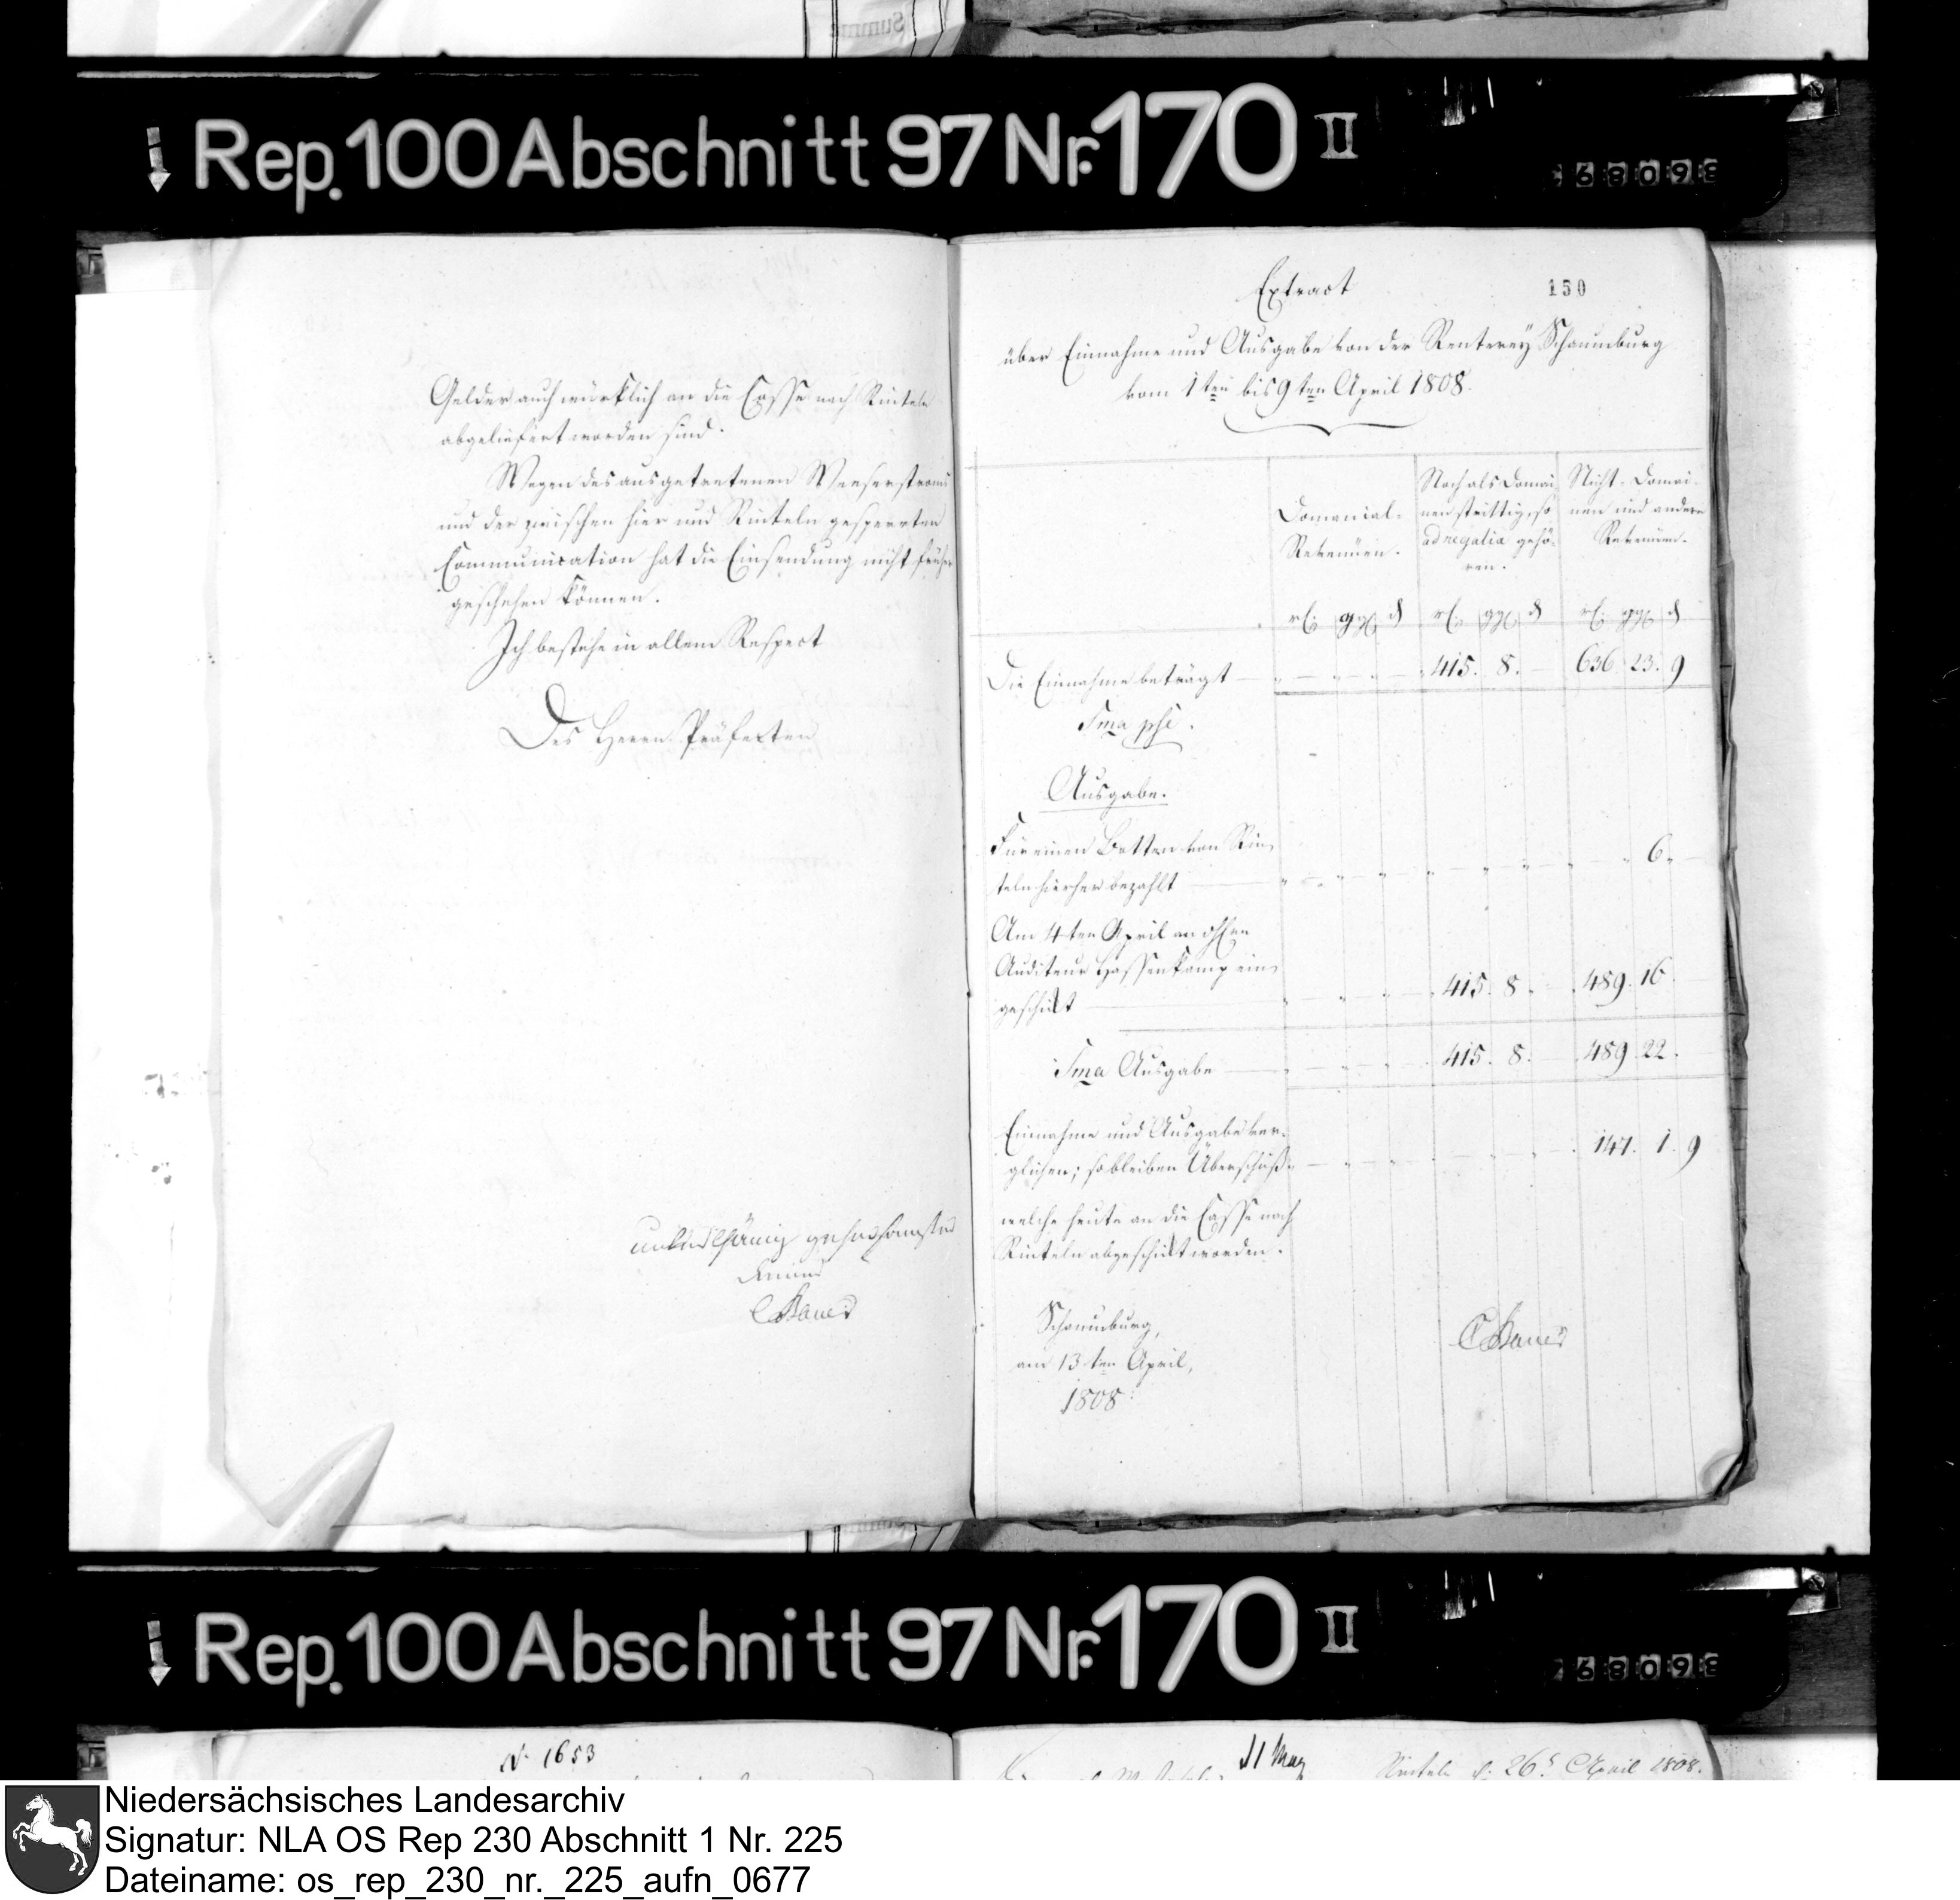 Rep. 100 Abschnitt 97 Nr. 170 II
Gelder auch würklich an die Casse nach Rinteln
abgeliefert worden sind.
Wegen des ausgetretenen Weeserstroms
und der zwischen hier und Rinteln gesperrten
Communication hat die Einsendung nicht früher
geschehen können.
Ich bestehe in allem Respect
Des Herrn Präfecten
unterthänig gehorsamster
Diener
CBauer
Extract
150
über Einnahme und Ausgabe von der Renterey Schaumburg
vom 1ten bis 9ten April 1808.
Domanial-
Revenüen.
Noch als Domai
nen strittig, so
ad regalia gehö-
ren.
Nicht-Domai-
nen und andere
Revenüen.
rl. ggl. d rl. ggl. d rl. ggl. d
Die Einnahme beträgt — 415. 8. — 636. 23. 9
Sma pse.
Ausgabe.
Für einen Botten von Rin-
teln hierher bezahlt — 6. —
Am 4ten April an Hrn
Auditeur Hassenkamp ein-
geschickt — 415. 8. — 489. 16. —
Sma Ausgabe — 415. 8. — 489. 22. —
Einnahme und Ausgabe ver-
glichen; so bleiben Überschuß — 147. 1. 9
welche heute an die Casse nach
Rinteln abgeschickt worden.
Schaumburg,
am 13ten April,
1808.
CBauer
Rep. 100 Abschnitt 97 Nr. 170 II
N. 1653
11 May
Rinteln d. 26t April 1808.
Niedersächsisches Landesarchiv
Signatur: NLA OS Rep 230 Abschnitt 1 Nr. 225
Dateiname: os_rep_230_nr._225_aufn_0677